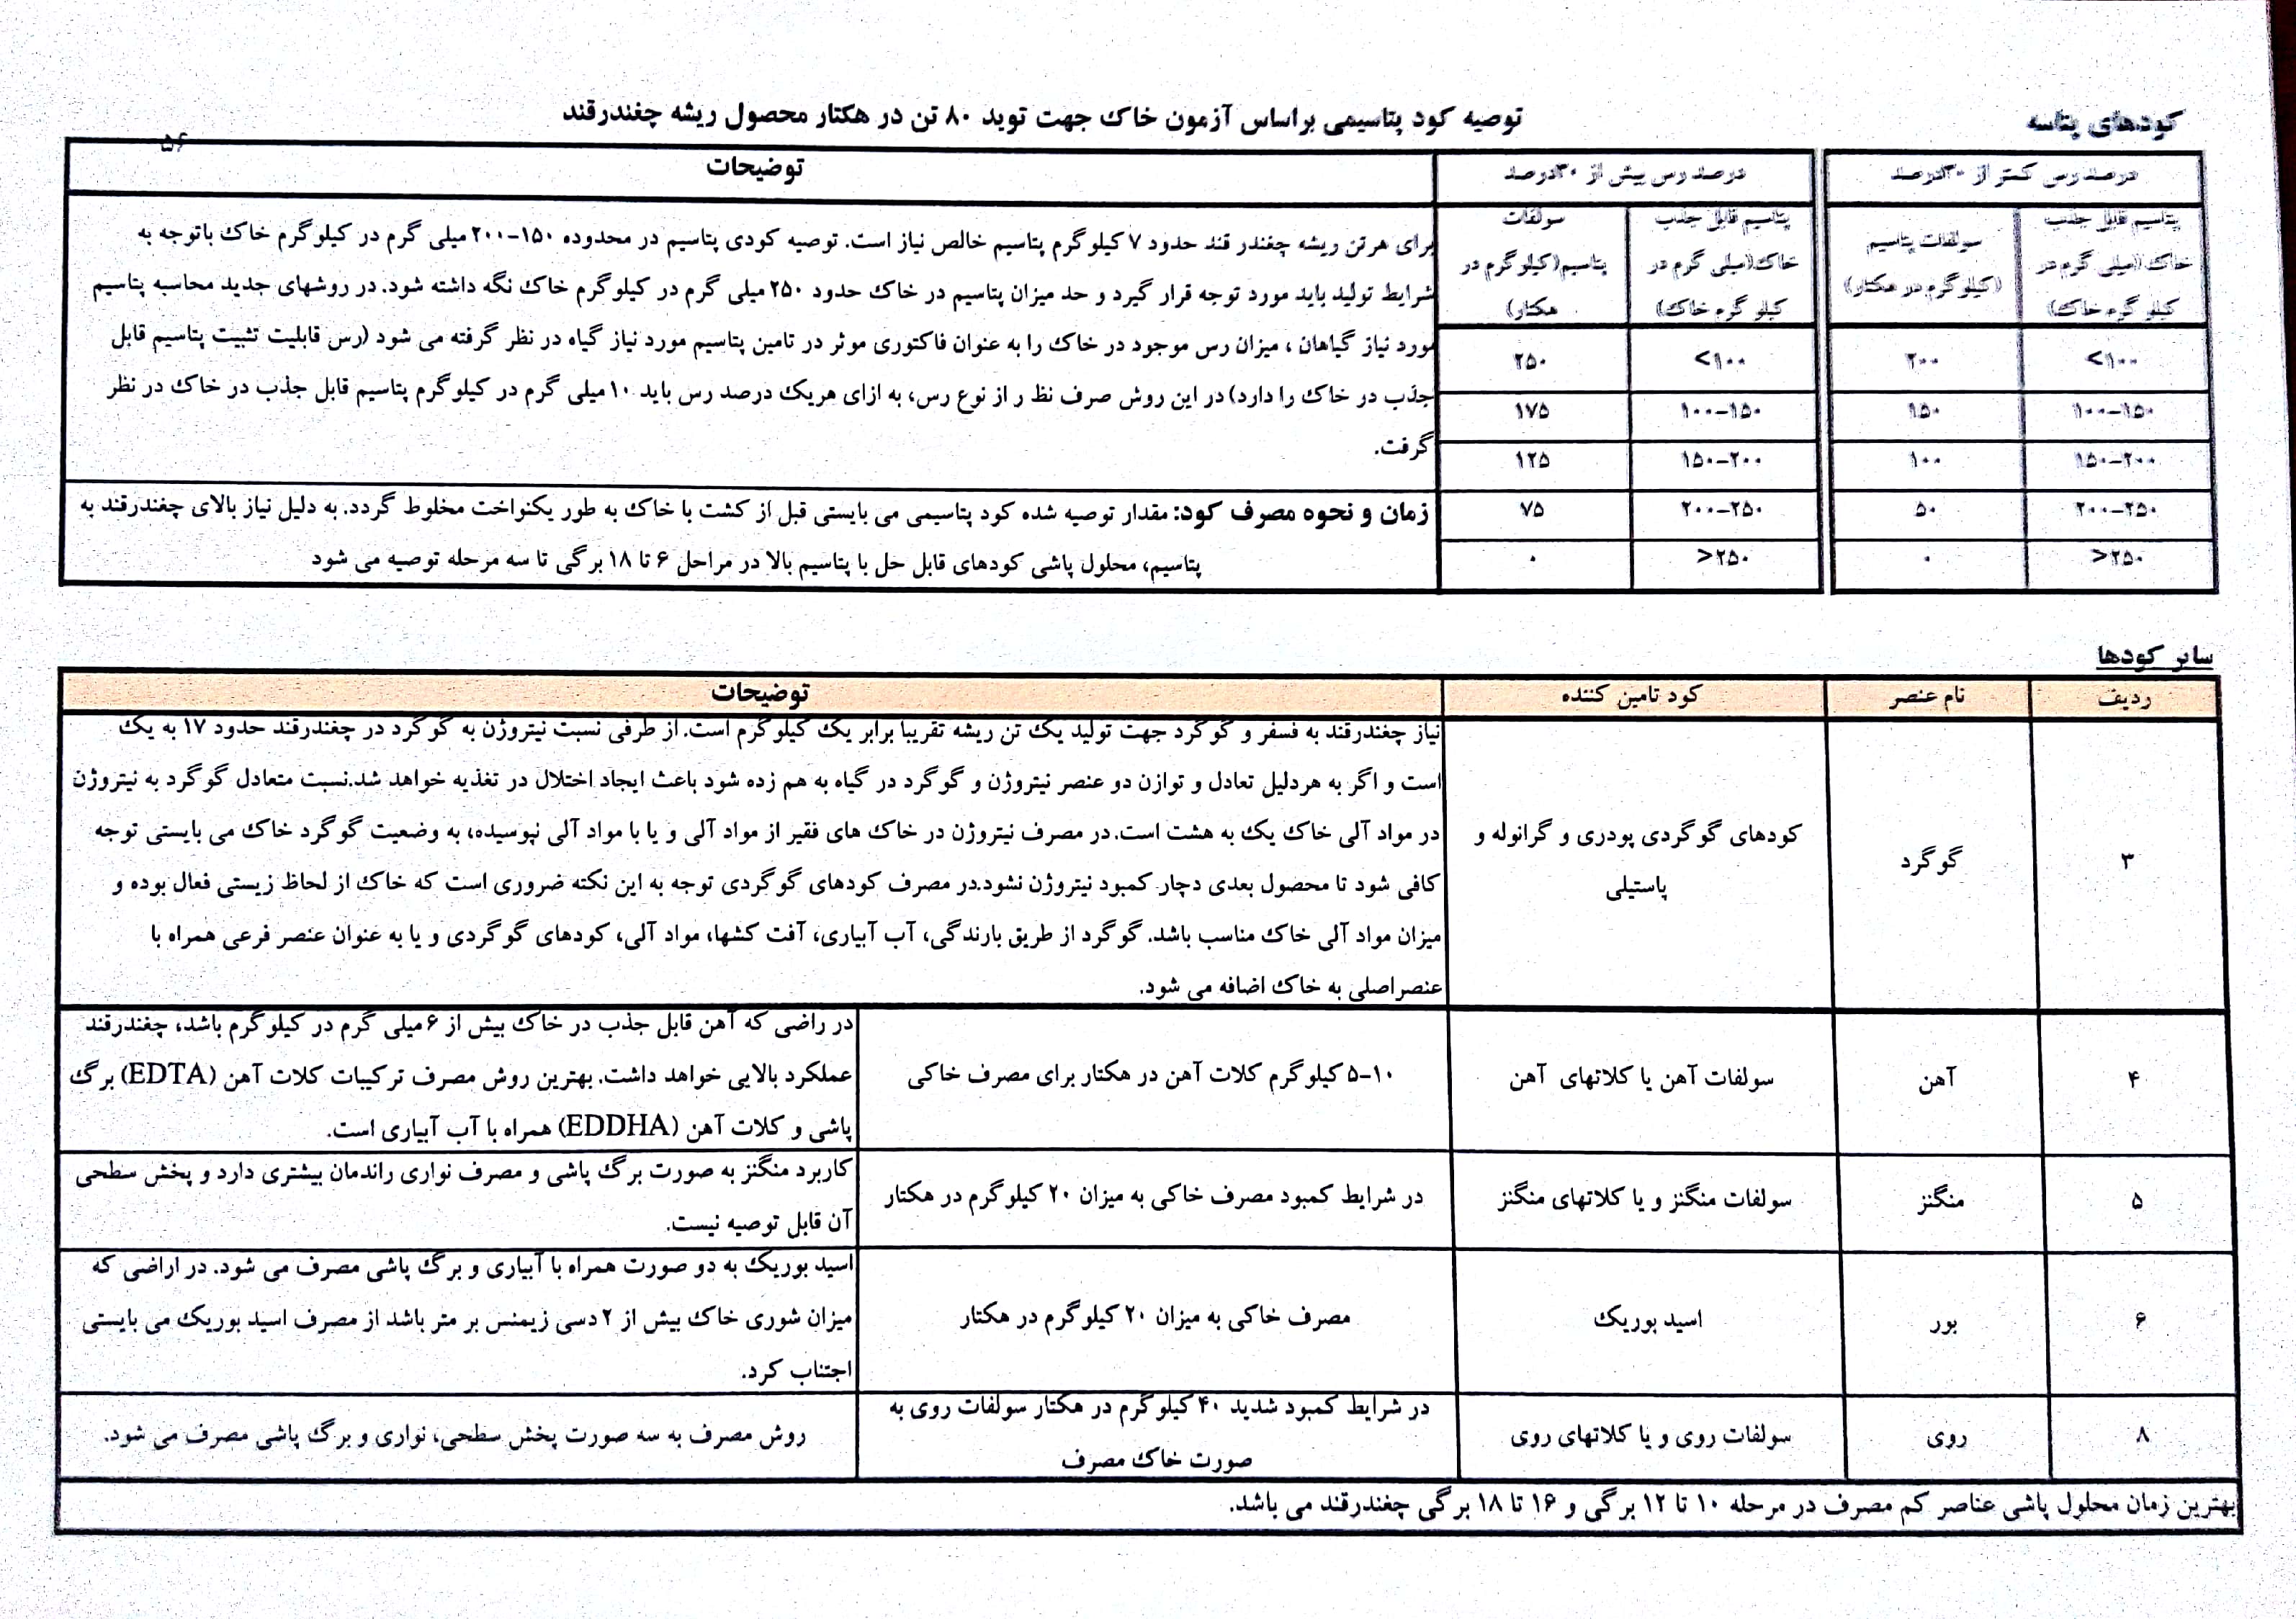 کودهای پتاسه
توصیه کود پتاسیمی براساس آزمون خاک جهت توید ۸۰ تن در هکتار محصول ریشه چغندرقند
۵۶
درصد رس کمتر از ۳۰درصد
درصد رس بیش از ۳۰درصد
توضیحات
پتاسیم قابل جذب
خاک(میلی گرم در
کیلو گرم خاک)
سولفات پتاسیم
(کیلوگرم در هکتار)
پتاسیم قابل جذب
خاک(میلی گرم در
کیلو گرم خاک)
سولفات
پتاسیم(کیلوگرم در
هکتار)
<۱۰۰ ۲۰۰ <۱۰۰ ۲۵۰
۱۰۰-۱۵۰ ۱۵۰ ۱۰۰-۱۵۰ ۱۷۵
۱۵۰-۲۰۰ ۱۰۰ ۱۵۰-۲۰۰ ۱۲۵
۲۰۰-۲۵۰ ۵۰ ۲۰۰-۲۵۰ ۷۵
>۲۵۰ ۰ >۲۵۰ ۰
برای هرتن ریشه چغندر قند حدود ۷ کیلوگرم پتاسیم خالص نیاز است. توصیه کودی پتاسیم در محدوده ۱۵۰-۲۰۰ میلی گرم در کیلوگرم خاک باتوجه به
شرایط تولید باید مورد توجه قرار گیرد و حد میزان پتاسیم در خاک حدود ۲۵۰ میلی گرم در کیلوگرم خاک نگه داشته شود. در روشهای جدید محاسبه پتاسیم
مورد نیاز گیاهان ، میزان رس موجود در خاک را به عنوان فاکتوری موثر در تامین پتاسیم مورد نیاز گیاه در نظر گرفته می شود (رس قابلیت تثبیت پتاسیم قابل
جذب در خاک را دارد) در این روش صرف نظ ر از نوع رس، به ازای هریک درصد رس باید ۱۰ میلی گرم در کیلوگرم پتاسیم قابل جذب در خاک در نظر
گرفت.
زمان و نحوه مصرف کود: مقدار توصیه شده کود پتاسیمی می بایستی قبل از کشت با خاک به طور یکنواخت مخلوط گردد. به دلیل نیاز بالای چغندرقند به
پتاسیم، محلول پاشی کودهای قابل حل با پتاسیم بالا در مراحل ۶ تا ۱۸ برگی تا سه مرحله توصیه می شود
سایر کودها
ردیف نام عنصر کود تامین کننده توضیحات
۳
گوگرد
کودهای گوگردی پودری و گرانوله و
پاستیلی
نیاز چغندرقند به فسفر و گوگرد جهت تولید یک تن ریشه تقریبا برابر یک کیلوگرم است. از طرفی نسبت نیتروژن به گوگرد در چغندرقند حدود ۱۷ به یک
است و اگر به هردلیل تعادل و توازن دو عنصر نیتروژن و گوگرد در گیاه به هم زده شود باعث ایجاد اختلال در تغذیه خواهد شد.نسبت متعادل گوگرد به نیتروژن
در مواد آلی خاک یک به هشت است. در مصرف نیتروژن در خاک های فقیر از مواد آلی و یا با مواد آلی نپوسیده، به وضعیت گوگرد خاک می بایستی توجه
کافی شود تا محصول بعدی دچار کمبود نیتروژن نشود.در مصرف کودهای گوگردی توجه به این نکته ضروری است که خاک از لحاظ زیستی فعال بوده و
میزان مواد آلی خاک مناسب باشد. گوگرد از طریق بارندگی، آب آبیاری، آفت کشها، مواد آلی، کودهای گوگردی و یا به عنوان عنصر فرعی همراه با
عنصراصلی به خاک اضافه می شود.
۴
آهن
سولفات آهن یا کلاتهای آهن
۵-۱۰ کیلوگرم کلات آهن در هکتار برای مصرف خاکی
در راضی که آهن قابل جذب در خاک بیش از ۶ میلی گرم در کیلوگرم باشد، چغندرقند
عملکرد بالایی خواهد داشت. بهترین روش مصرف ترکیبات کلات آهن (EDTA) برگ
پاشی و کلات آهن (EDDHA) همراه با آب آبیاری است.
۵
منگنز
سولفات منگنز و یا کلاتهای منگنز
در شرایط کمبود مصرف خاکی به میزان ۲۰ کیلوگرم در هکتار
کاربرد منگنز به صورت برگ پاشی و مصرف نواری راندمان بیشتری دارد و پخش سطحی
آن قابل توصیه نیست.
۶
بور
اسید بوریک
مصرف خاکی به میزان ۲۰ کیلوگرم در هکتار
اسید بوریک به دو صورت همراه با آبیاری و برگ پاشی مصرف می شود. در اراضی که
میزان شوری خاک بیش از ۲ دسی زیمنس بر متر باشد از مصرف اسید بوریک می بایستی
اجتناب کرد.
۸
روی
سولفات روی و یا کلاتهای روی
در شرایط کمبود شدید ۴۰ کیلوگرم در هکتار سولفات روی به
صورت خاک مصرف
روش مصرف به سه صورت پخش سطحی، نواری و برگ پاشی مصرف می شود.
بهترین زمان محلول پاشی عناصر کم مصرف در مرحله ۱۰ تا ۱۲ برگی و ۱۶ تا ۱۸ برگی چغندرقند می باشد.